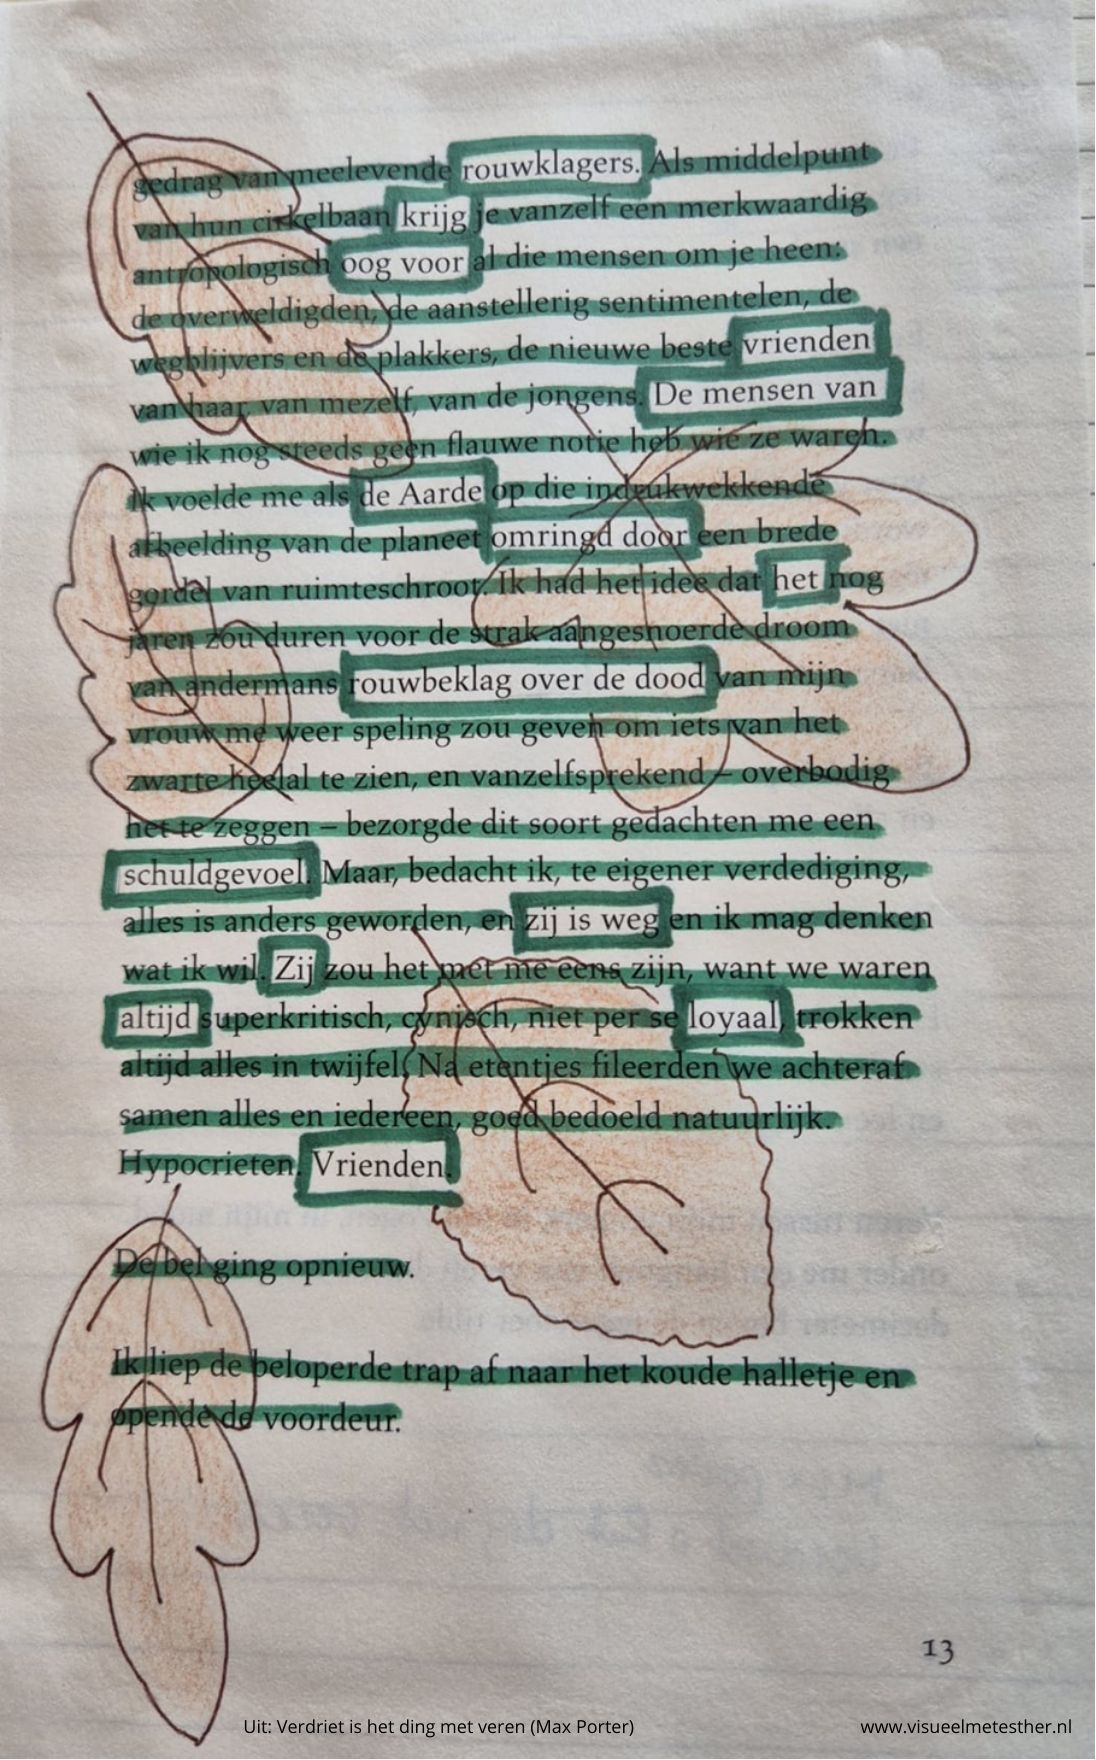 gedrag van meelevende rouwklagers. Als middelpunt
van hun cirkelbaan krijg je vanzelf een merkwaardig
antropologisch oog voor al die mensen om je heen:
de overweldigden, de aanstellerig sentimentelen, de
wegblijvers en de plakkers, de nieuwe beste vrienden
van haar, van mezelf, van de jongens. De mensen van
wie ik nog steeds geen flauwe notie heb wie ze waren.
Ik voelde me als de Aarde op die indrukwekkende
afbeelding van de planeet omringd door een brede
gordel van ruimteschroot. Ik had het idee dat het nog
jaren zou duren voor de strak aangesnoerde droom
van andermans rouwbeklag over de dood van mijn
vrouw me weer speling zou geven om iets van het
zwarte heelal te zien, en vanzelfsprekend – overbodig
het te zeggen – bezorgde dit soort gedachten me een
schuldgevoel. Maar, bedacht ik, te eigener verdediging,
alles is anders geworden, en zij is weg en ik mag denken
wat ik wil. Zij zou het met me eens zijn, want we waren
altijd superkritisch, cynisch, niet per se loyaal, trokken
altijd alles in twijfel. Na etentjes fileerden we achteraf
samen alles en iedereen, goed bedoeld natuurlijk.
Hypocrieten. Vrienden.
De bel ging opnieuw.
Ik liep de beloperde trap af naar het koude halletje en
opende de voordeur.
13
Uit: Verdriet is het ding met veren (Max Porter)
www.visueelmetesther.nl